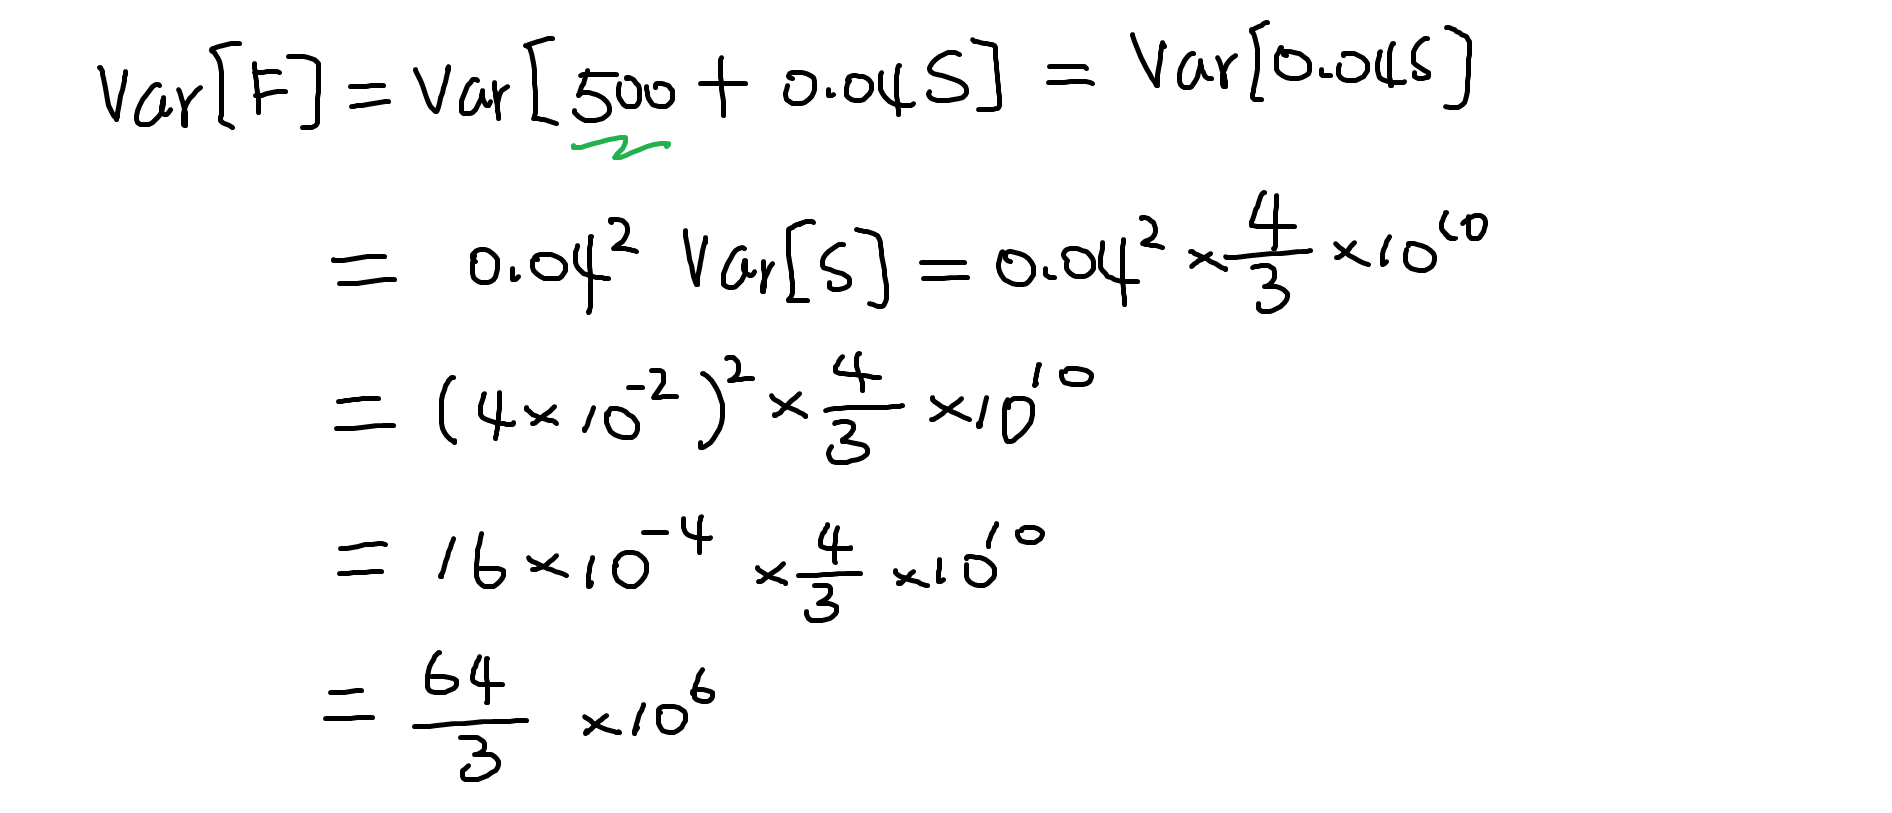 Var[F] = Var[500 + 0.04S] = Var[0.04S]
= 0.04² Var[S] = 0.04² × 4/3 × 10¹⁰
= (4 × 10⁻²)² × 4/3 × 10¹⁰
= 16 × 10⁻⁴ × 4/3 × 10¹⁰
= 64/3 × 10⁶